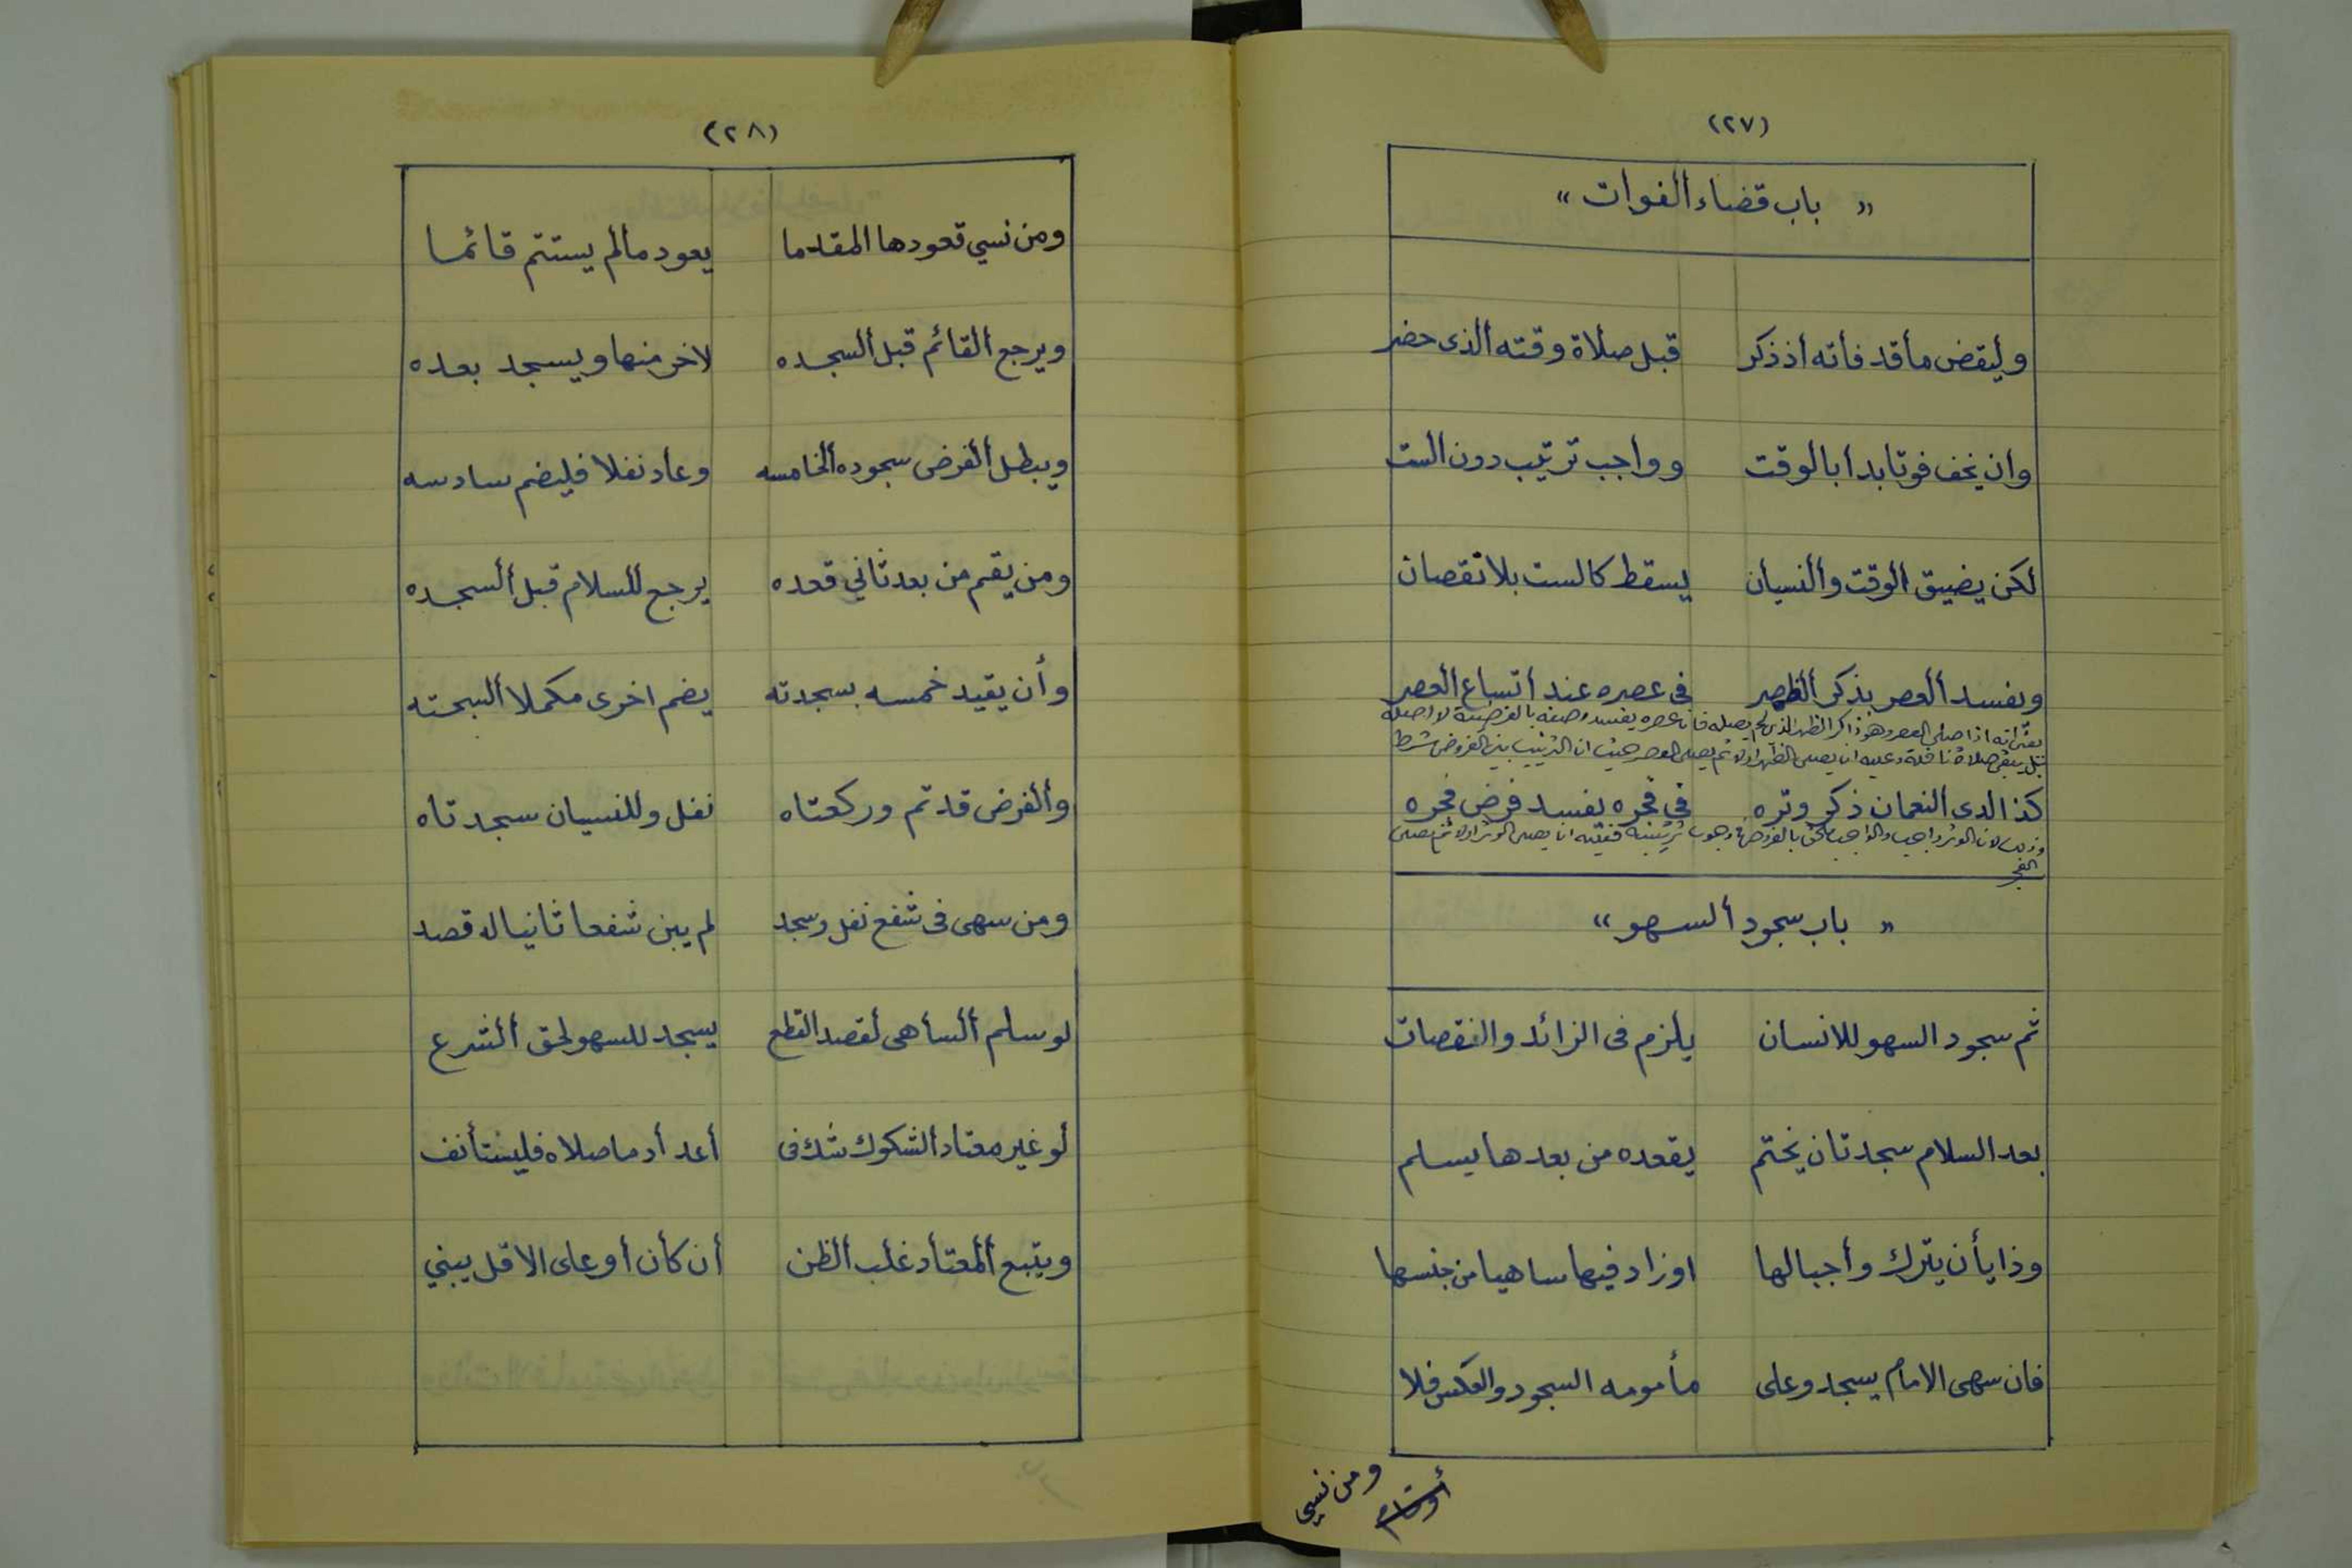 (٢٧)
« باب قضاء ألفوات »
وليقض مأقد فأته أذ ذكر    قبل صلأة وقته ألذى حضر
وان يخف فوتا بدا بالوقت    وواجب ترتيب دون ألست
لكن يضيق الوقت وألنسيأن    يسقط كالست بلا نقصان
ويفسد ألعصر بذكر ألظهر    فى عصره عند أتساع ألعصر
يعنى انه اذا صلى العصر وهو ذاكر الظهر الذى لم يصله فان عصره يفسد وصفه بالفرضية لا اصله
بل يبقى صلاة نافلة وعليه ان يصلى الظهر اولا ثم يصلى العصر حيث ان الترتيب بين الفروض شرط
كذا لدى ألنعمان ذكر وتره    في فجره يفسد فرض فجره
وذلك لان الوتر واجب والواجب ملحق بالفروض وجوب ترتيبه ان يصلى الوتر اولا ثم يصلى
الفجر
« باب سجود ألسهو »
ثم سجود السهو للانسان    يلزم فى الزائد والنقصان
بعد السلام سجدتان يختم    يقعده من بعدها يسلم
وذا يأن يترك وأجبا لها    اوزاد فيها ساهيا من جنسها
فان سهى الامام يسجد وعلى    مأمومه السجود والعكس فلا
ومن نسي
(٢٨)
ومن نسي قعودها المقدما    يعود مالم يستتم قائما
ويرجع ألقائم قبل ألسجده    لاخر منها ويسجد بعده
ويبطل ألفرض سجوده ألخامسه    وعاد نفلا فليضم سادسه
ومن يقم من بعد ثاني قعده    يرجع للسلام قبل ألسجده
وأن يقيد خمسه بسجدته    يضم اخرى مكملا ألسجته
وألفرض قد تم وركعتاه    نفل وللنسيان سجدتاه
ومن سهى فى شفع نفل وسجد    لم يبن شفعا ثانيا له قصد
لو سلم ألسأهى لقصد القطع    يسجد للسهو لحق ألشرع
لو غير معتاد ألشكوك شك فى    أعد أد ما صلاه فليستأنف
ويتبع ألمعتأد غلب ألظن    أن كأن أو على الاقل يبني